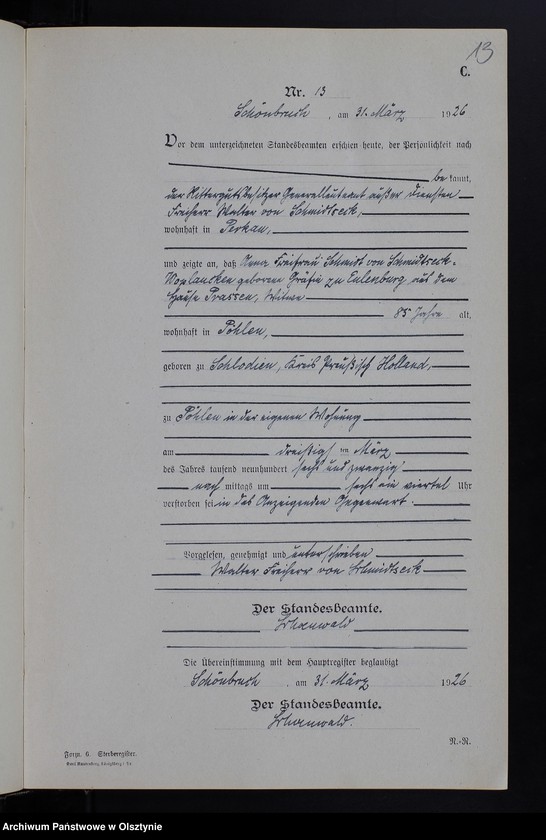 13
C.
Nr. 13
Schönbruch, am 31. März 1926
Vor dem unterzeichneten Standesbeamten erschien heute, der Persönlichkeit nach
be kannt,
der Rittergutsbesitzer Generalleutnant außer Diensten
Freiherr Walter von Schmidtseck,
wohnhaft in Perkau,
und zeigte an, daß Anna Freifrau Schmidt von Schmidtseck-
Woplaucken geborene Gräfin zu Eulenburg aus dem
Hause Prassen, Witwe
85 Jahre alt,
wohnhaft in Pöhlen,
geboren zu Schlodien, Kreis Preußisch Holland,
zu Pöhlen in der eigenen Wohnung
am dreißigsten März
des Jahres tausend neunhundert sechs und zwanzig
nach mittags um sechs ein viertel Uhr
verstorben sei in des Anzeigenden Gegenwart.
Vorgelesen, genehmigt und unterschrieben
Walter Freiherr von Schmidtseck
Der Standesbeamte.
Die Übereinstimmung mit dem Hauptregister beglaubigt
Schönbruch, am 31. März 1926
Der Standesbeamte.
R.-R.
Form. 6. Sterberegister.
Archiwum Państwowe w Olsztynie